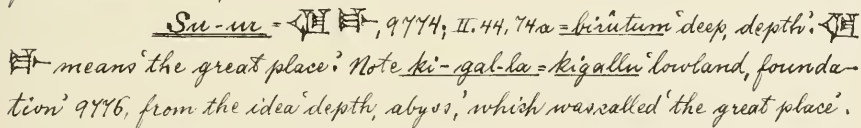 Su-ur = 𒆠 𒃲, 9774; II. 44, 74a = birûtum 'deep, depth'. 𒆠
𒃲 means 'the great place'. Note ki-gal-la = kigallu 'lowland, founda-
tion' 9776, from the idea 'depth, abyss,' which was called 'the great place'.